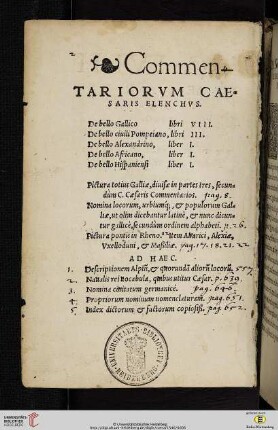 Commen-
TARIORVM CAE-
SARIS ELENCHVS.
De bello Gallico libri VIII.
De bello ciuili Pompeiano, libri III.
De bello Alexandrino, liber I.
De bello Africano, liber I.
De bello Hispaniensi liber I.
Pictura totius Galliæ, diuisæ in partes tres, secun-
dum C. Cæsaris Commentarios. pag. 8.
Nomina locorum, urbiumq́;, & populorum Gal-
liæ, ut olim dicebantur latinè, & nunc dicun-
tur gallicè, secundũm ordinem alphabeti. p. 26.
Pictura pontis in Rheno. Item Auarici, Alexiæ,
Vxelloduni, & Massiliæ. pag. 17. 18. 21. 22
AD HAEC.
1. Descriptionem Alpiũ, & quorundã aliorũ locorũ. 557.
2. Naualis rei uocabula, quibus utitur Cæsar. p. 630.
3. Nomina ciuitatum germanicè. pag. 640.
4. Propriorum nominum nomenclaturam. pag. 651.
5. Index dictorum & factorum copiosiss. pag. 652.